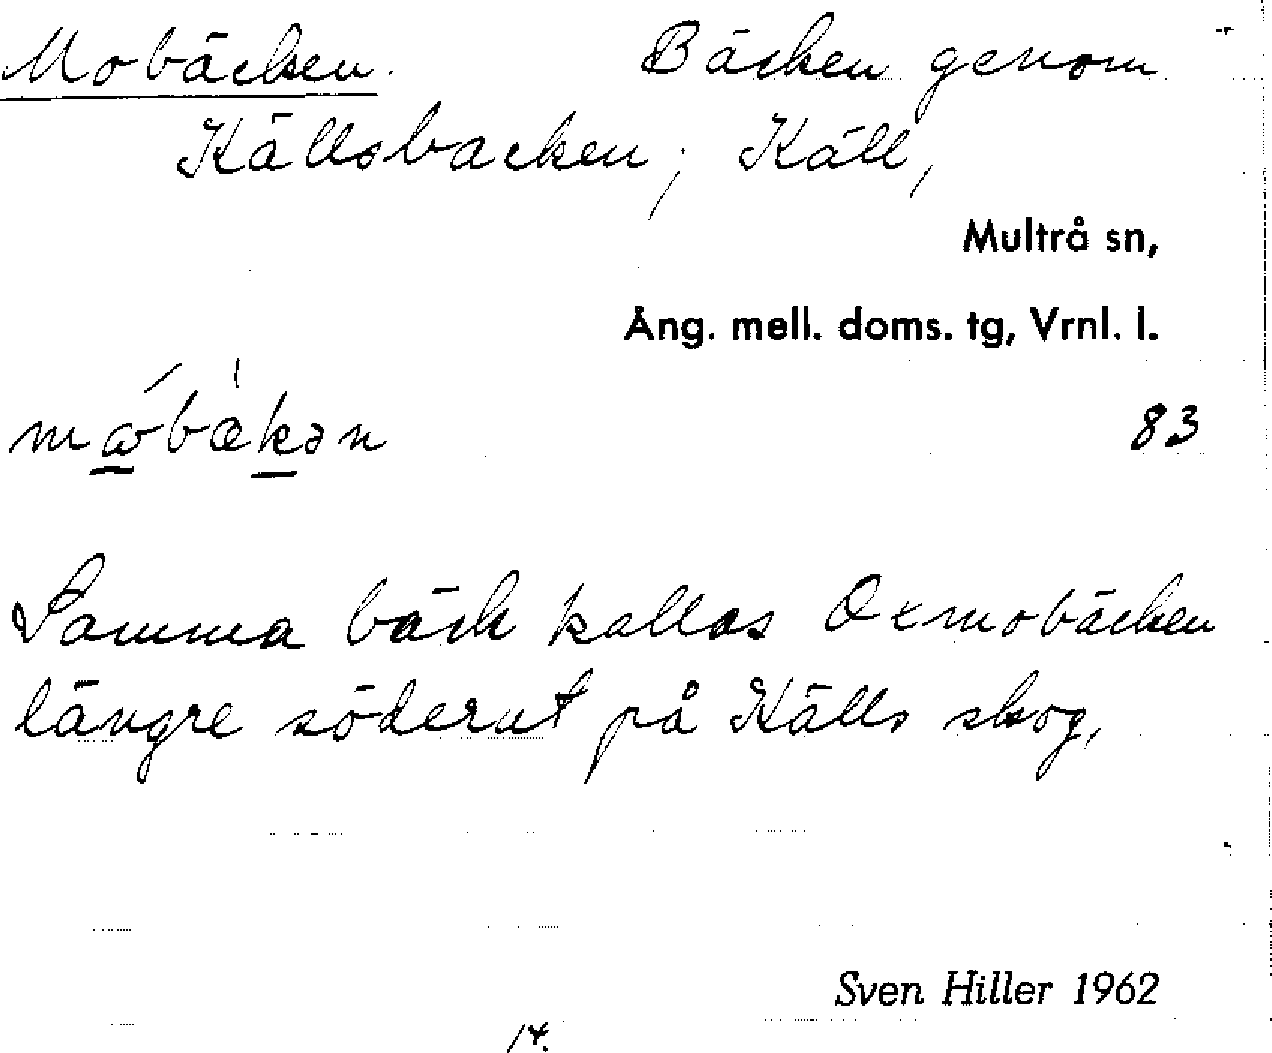 Mobäcken. Bäcken genom
Källsbacken; Käll,
Multrå sn,
Ång. mell. doms. tg, Vrnl. l.
83
Samma bäck kallas Oxmobäcken
längre söderut på Källs skog,
Sven Hiller 1962
14.